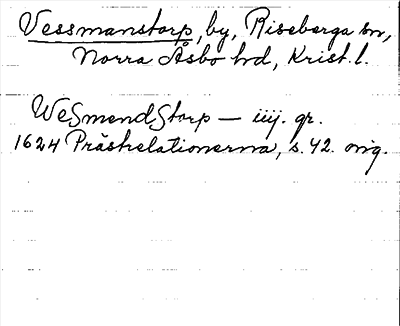 Vessmanstorp, by, Riseberga sn,
Norra Åsbo hd, Krist. l.
WeSmendStorp — iiij. gr.
1624 Prästrelationerna, s. 42. orig.